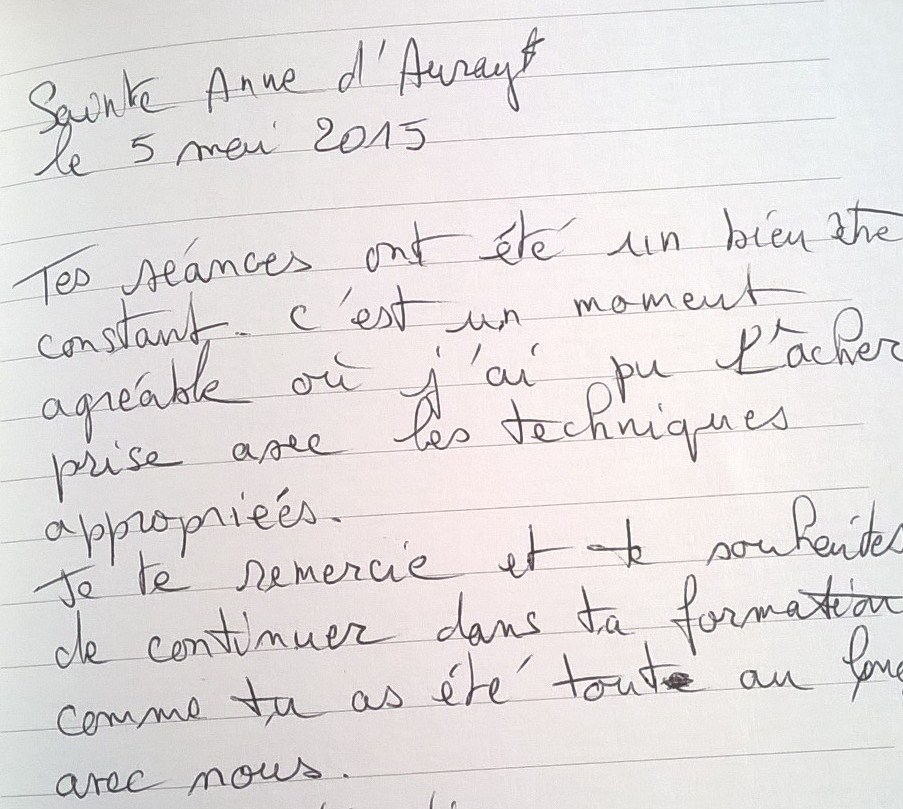 Sainte Anne d'Auray
le 5 mai 2015
Tes séances ont été un bien être
constant. C'est un moment
agréable où j'ai pu l'acher
prise avec les techniques
appropriéés.
Je te remercie et te souhaites
de continuer dans ta formation
comme tu as été tout au long
avec nous.